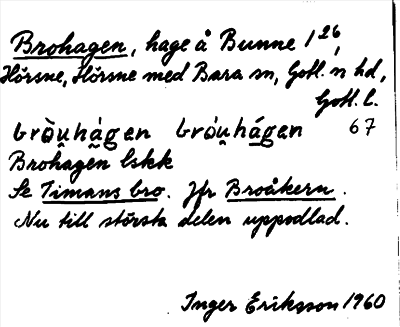 Brohagen, hage å Bunne 1²⁶,
Hörsne, Hörsne med Bara sn, Gotl. n hd,
Gotl. l.
bròu̯hágen bróu̯hágen 67
Brohagen lskk
Se Timans bro. Jfr Broåkern.
Nu till största delen uppodlad.
Inger Eriksson 1960